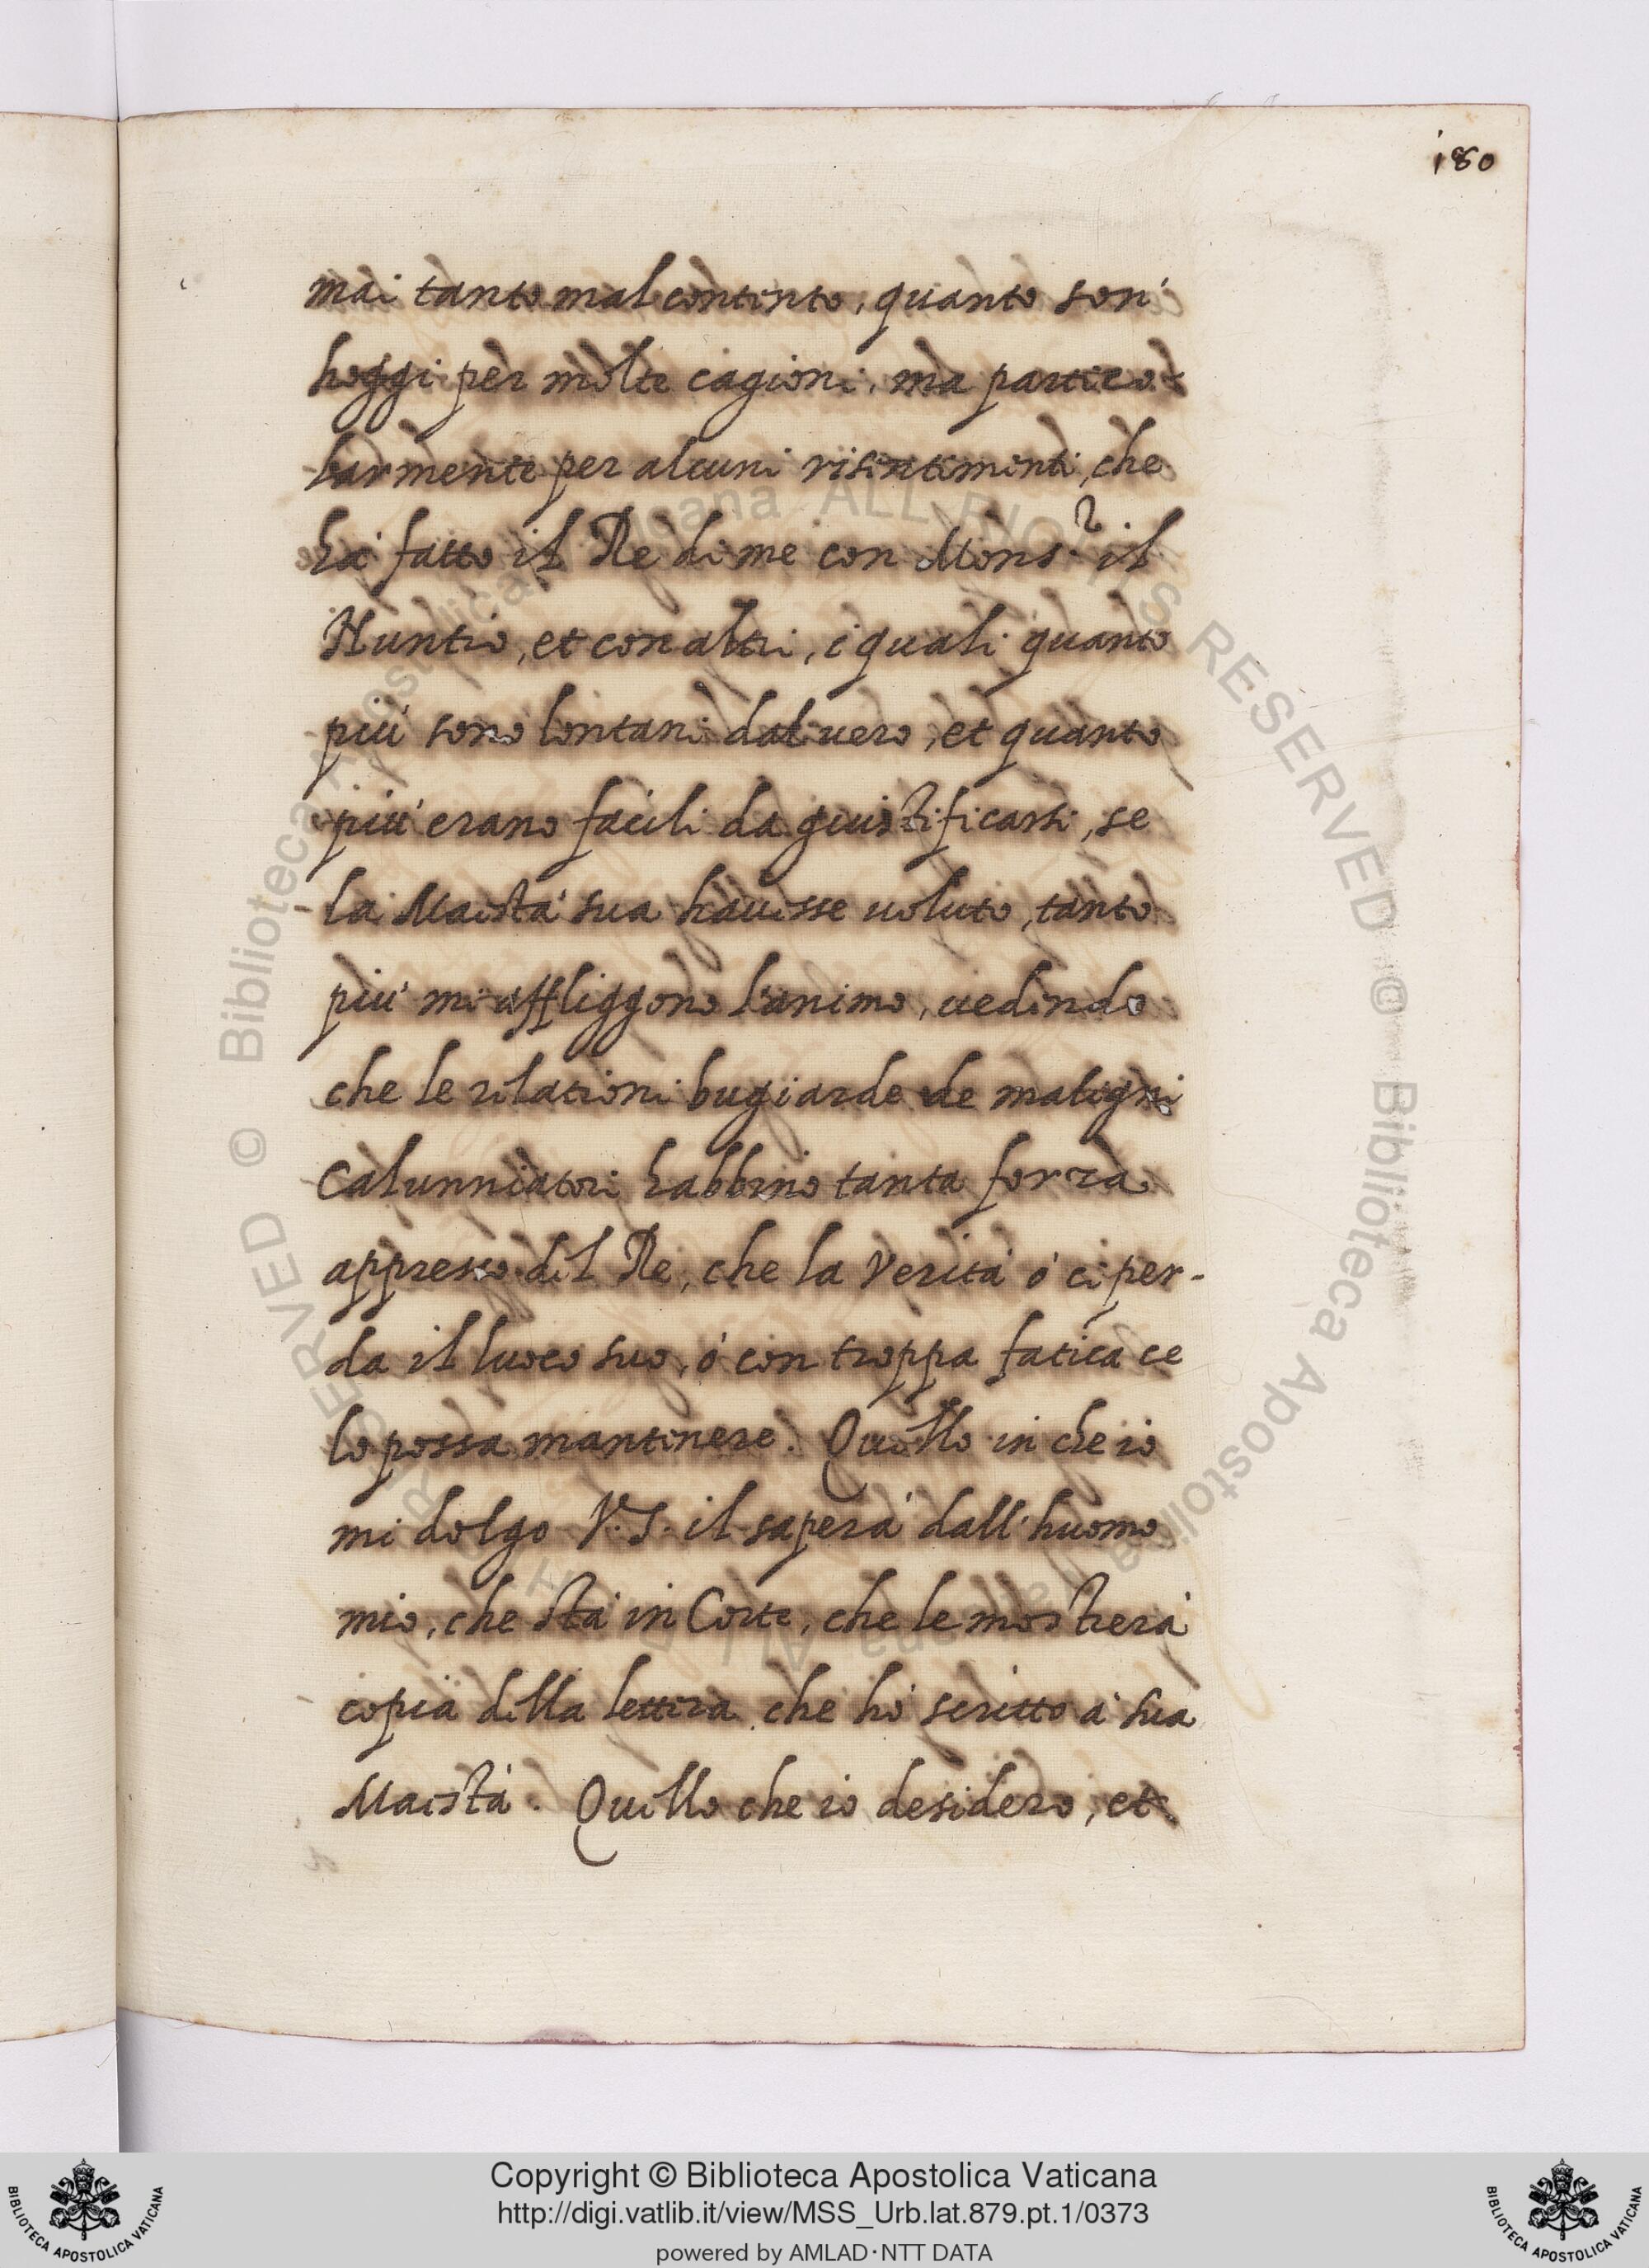 180
mai tanto mal contento, quanto son'
hoggi per molte cagioni, ma partico-
larmente per alcuni risentimenti, che
ha' fatto il Re di me con Mons.r il
Nuntio, et con altri, i quali quanto
piu' sono lontani dal vero, et quanto
piu' erano facili da giustificarsi, se
la Maesta' sua havesse voluto, tanto
piu' mi affliggono l'animo, vedendo
che le relationi bugiarde de maligni
Calunniatori habbino tanta forza
appresso del Re, che la Verita' o' ci per-
da il luoco suo, o' con troppa fatica ce
lo possa mantenere. Quello in che io
mi dolgo V.S. il sapera' dall'huomo
mio, che sta' in Corte, che le mostrera'
copia della lettera che ho' scritto a' sua
Maesta'. Quello che io desidero, et
© Biblioteca Apostolica Vaticana ALL RIGHTS RESERVED © Biblioteca Apostolica Vaticana ALL RIGHTS RESERVED
Copyright © Biblioteca Apostolica Vaticana
http://digi.vatlib.it/view/MSS_Urb.lat.879.pt.1/0373
powered by AMLAD·NTT DATA
BIBLIOTECA APOSTOLICA VATICANA
BIBLIOTECA APOSTOLICA VATICANA